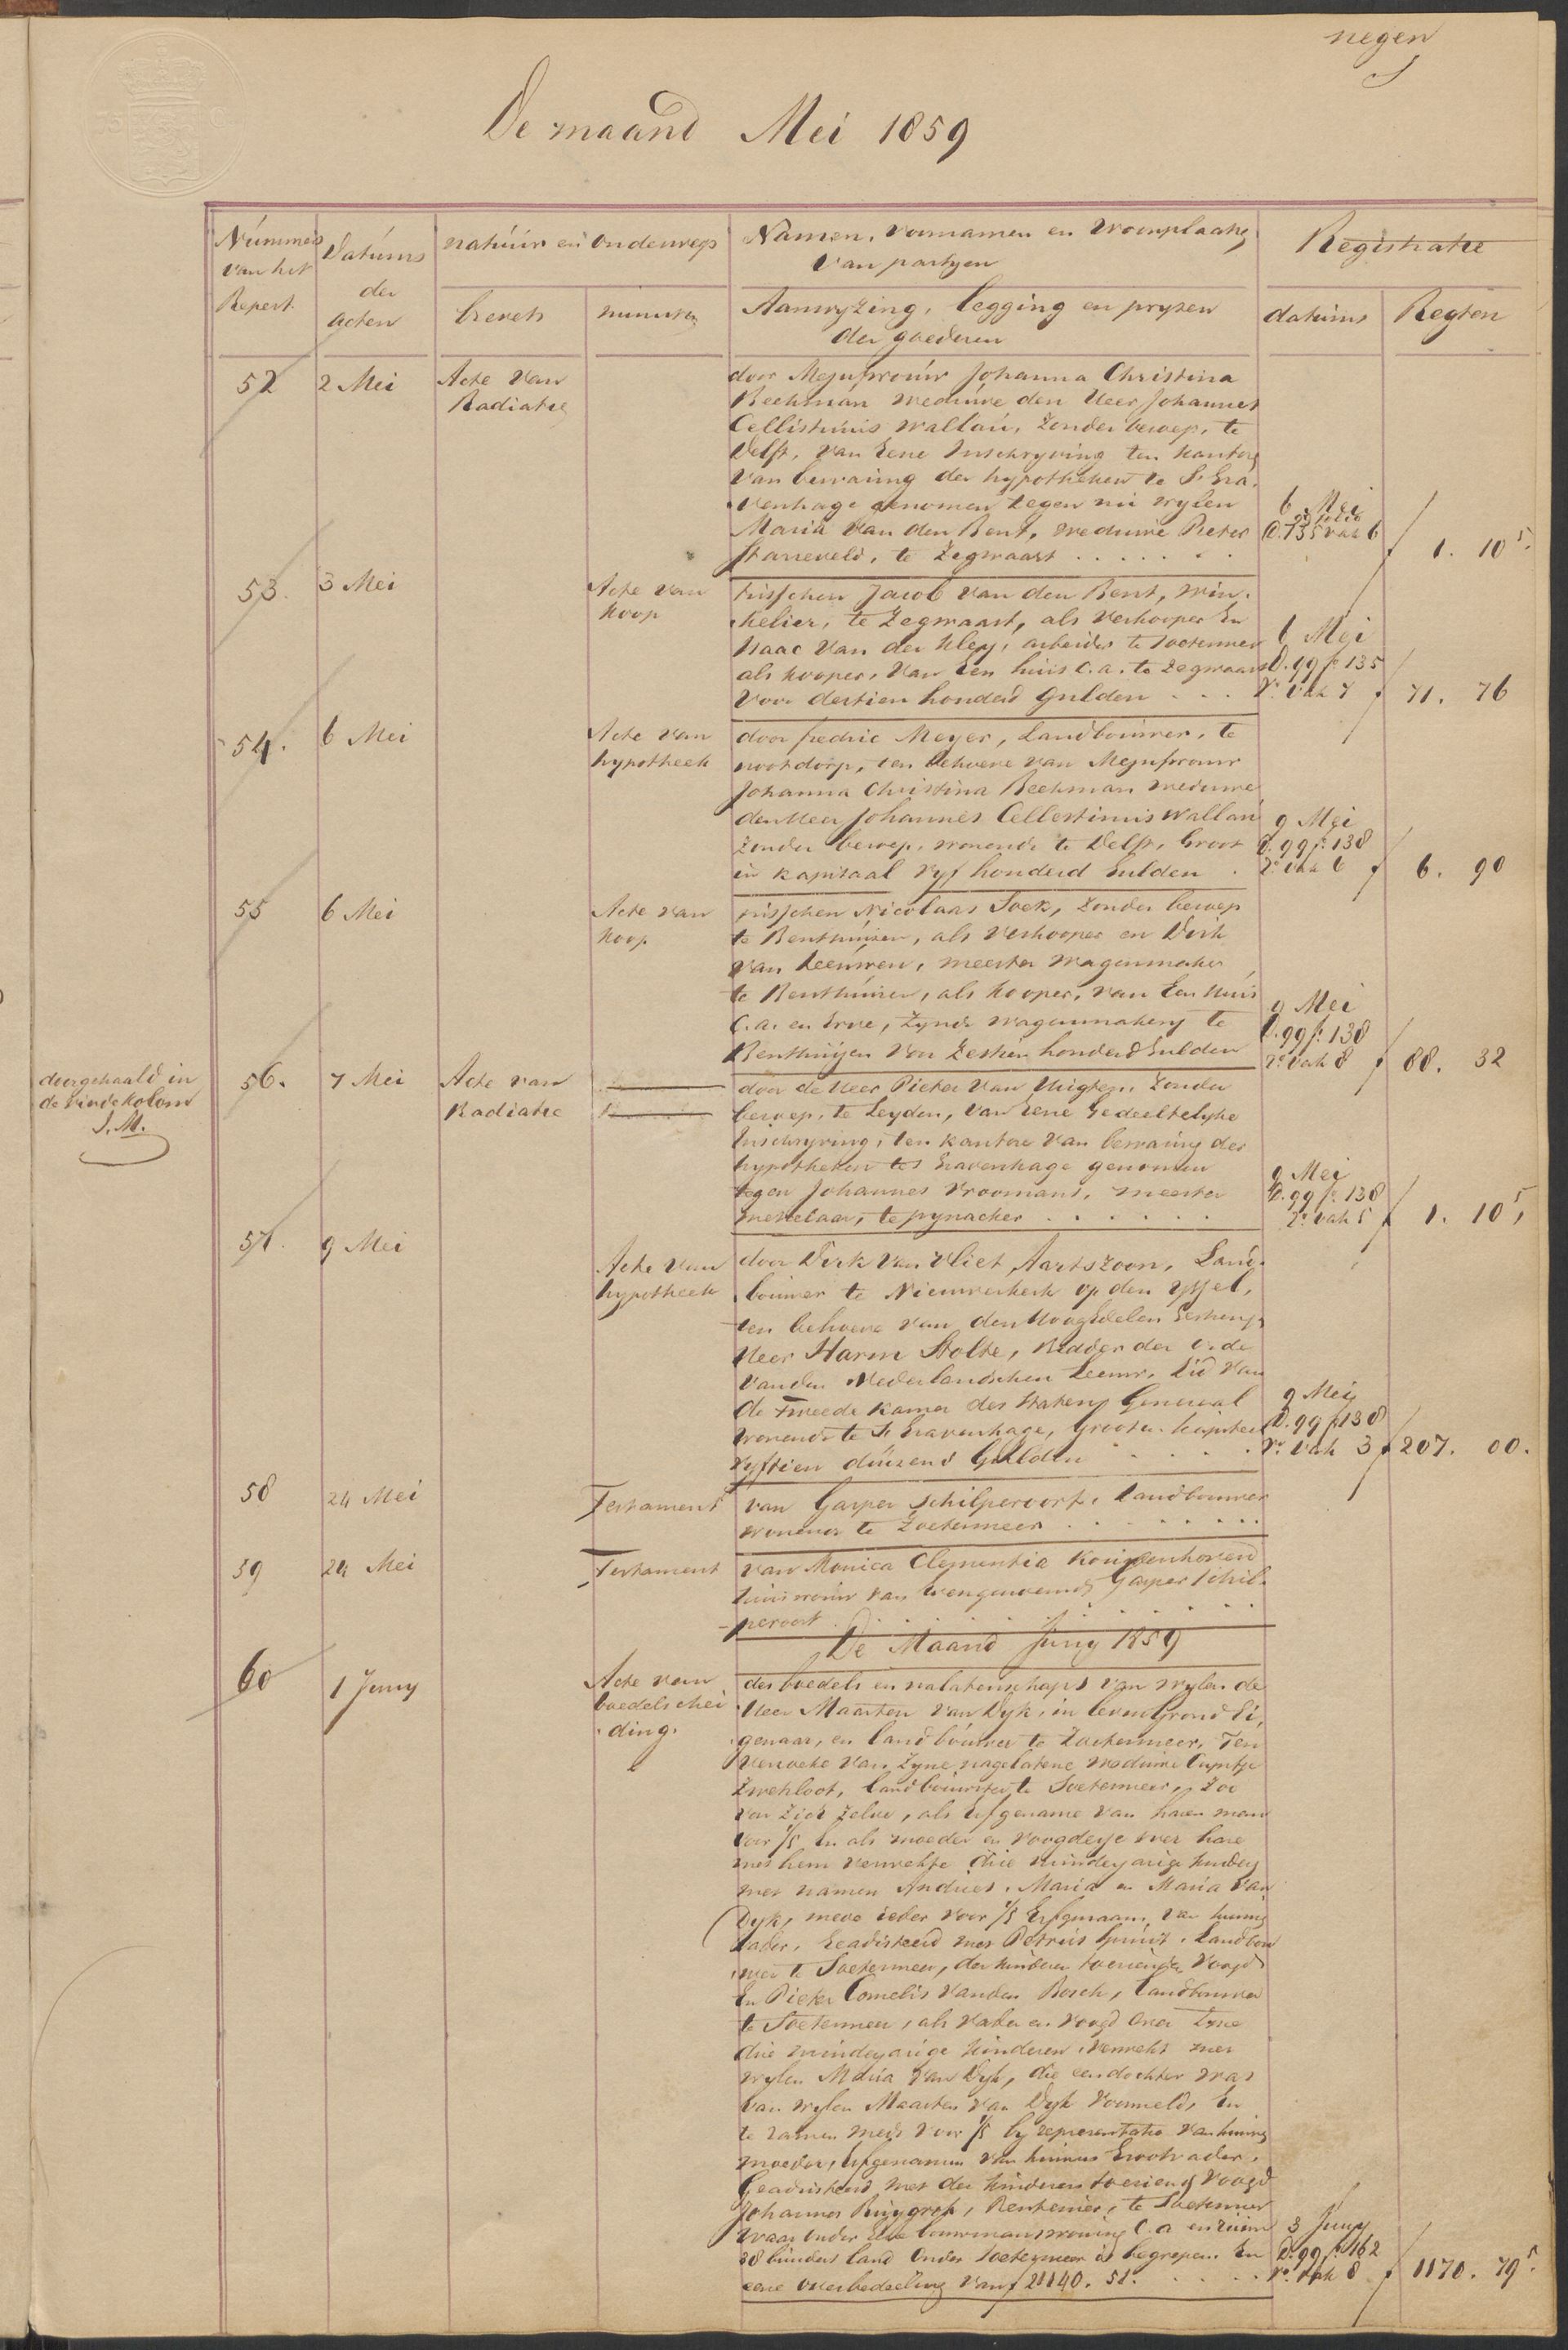 negen
De maand Mei 1859
Nummers van het Repert.
Datums der acten
natuur en onderwerp
Namen, voornamen en Woonplaats
van partyen
Registratie
brevets
minuten
Aanwyzing, legging en pryzen
der goederen
datums
Regten
52
2 Mei
Acte van
Radiatie
door Mejufvrouw Johanna Christina
Beekman weduwe den Heer Johannes
Cellistinus Wallau, zonder beroep, te
Delft, van Eene Inschryving ten kantore
van bewaring der hypotheken te S' Gra-
venhage genomen tegen nu wylen
Maria van den Bent, weduwe Pieter
Starreveld, te Zegwaart
6 Mei
D. 99 folio
135 vak 6
f 1. 10 5.
53.
3 Mei
Acte van
koop
tusschen Jacob van den Bent, win-
kelier, te Zegwaart, als verkooper En
Isaac van der Kley, arbeider te Soetermeer
als kooper, van Een huis c.a. te Zegwaart
voor dertien honderd Gulden
6 Mei
D. 99 f. 135
r. vak 7
f 71. 76
54.
6 Mei
Acte van
hypotheek
door fredric Meyer, Landbouwer, te
nootdorp, ten behoeve van Mejufvrouw
Johanna Christina Beekman weduwe
den Heer Johannes Cellestinus Wallau
zonder beroep, wonende te Delft, Groot
in kapitaal vyf honderd Gulden
9 Mei
D. 99 f. 138
r. vak 6
f 6. 90
55
6 Mei
Acte van
koop
tusschen Nicolaas Soek, zonder beroep
te Benthuizen, als verkooper en Dirk
van Leeuwen, meester wagenmaker
te Benthuizen, als kooper, van Een Huis
c.a. en Erve, zynde wagenmakery te
Benthuizen voor Zestien honderd Gulden
9 Mei
D. 99 f. 138
r. vak 8
f 88. 32
doorgehaald in
de vierde kolom
J. M.
56.
7 Mei
Acte van
Radiatie
door de Heer Pieter van zonder
beroep, te Leyden, van Eene Gedeeltelyke
Inschryving, ten kantore van bewaring der
hypotheken te s Gravenhage genomen
tegen Johannes Vroomans, meester
metselaar, te pynacker
9 Mei
D. 99 f. 138
r. vak 5
f 1. 10 5.
57.
9 Mei
Acte van
hypotheek
door Dirk van Vliet Aartszoon, Land-
bouwer te Nieuwerkerk op den yssel,
ten behoeve van den HoogEdelen Gestrengen
Heer Harm Stolte, Ridder der Orde
van den Nederlandschen Leeuw, Lid van
de Tweede Kamer der Staten Generaal
wonende te S Gravenhage, groot in kapitaal
vyftien duizend Gulden
9 Mei
D. 99 f. 138
r. vak 3
f 207. 00.
58
24 Mei
Testament
van Gasper Schilperoort, Landbouwer
wonende te Zoetermeer
59
24 Mei
Testament
van Monica Clementia
huisvrouw van Evengenoemde Gasper Schil-
peroort
De Maand Juny 1859
60
1 Juny
Acte van
boedelschei
ding.
des boedels en nalatenschaps van wylen de
Heer Maarten van Dyk, in leven Grond Ei-
genaar, en landbouwer te Zoetermeer, Ten
verzoeke van Zyne nagelatene weduwe
landbouwster te Soetermeer, zoo
voor zich zelve, als Erfgename van haren man
voor 1/5 En als moeder en voogdesse over hare
met hem verwekte drie minderjarige kinderen
met namen Andries, Maria en Maria van
Dyk, mede ieder voor 1/5 Erfgenaam van hunnen
vader, Geadsisteerd met Petrus Landbou
wer te Soetermeer, der kinderen toeziende Voogd
En Pieter Cornelis van den Bosch, landbouwer
te Soetermeer, als vader en voogd over zyne
drie minderjarige kinderen verwekt met
wylen Maria van Dyk, die een dochter was
van wylen Maarten van Dyk voormeld, En
te zamen mede voor 1/5 by representatie van hunne
moeder, Erfgenamen van hunnen Grootvader,
Geadsisteerd met der kinderen toeziend Voogd
Johannes Ruygrok, Rentenier, te Soetermeer
waaronder Eene bouwmanswoning c.a. en ruim
38 bunders land onder Soetermeer is begrepen En
eene overbedeeling van f 21140. 51.
3 Juny
D. 99 f. 162
v. vak 8
f 1170. 79 5.